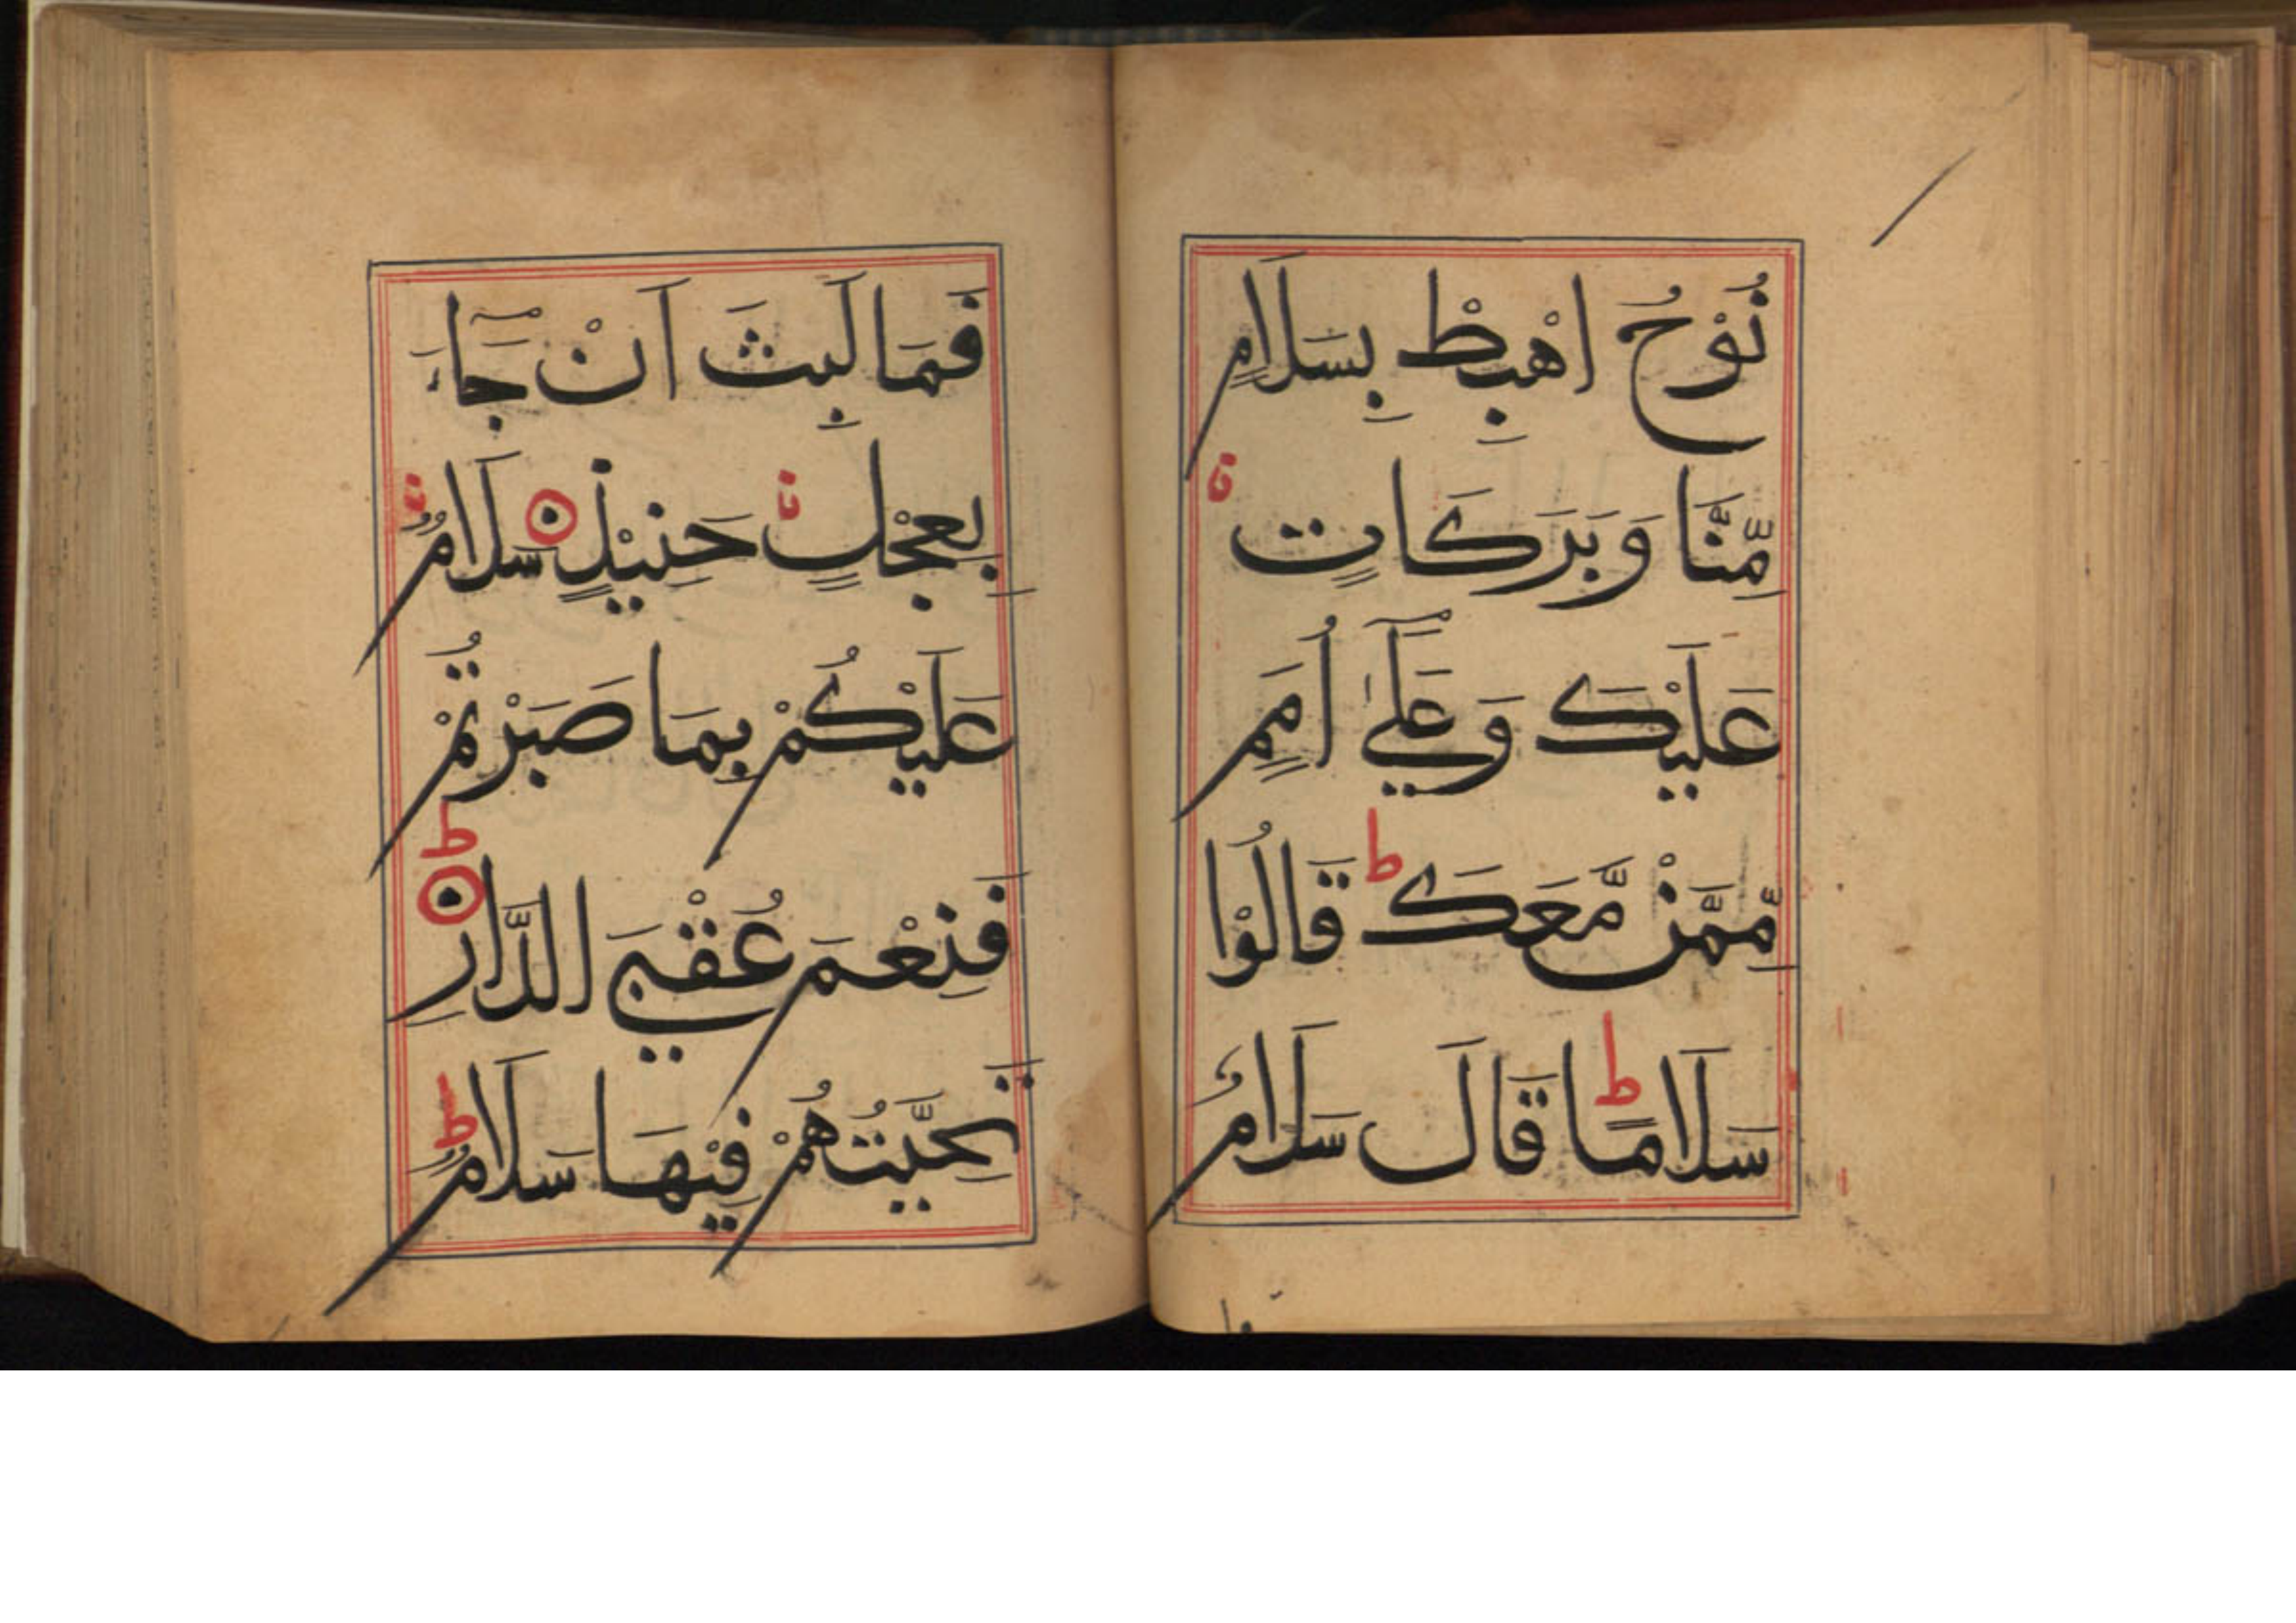 نُوْحُ اهْبِطْ بِسَلَامٍ
مِّنَّا وَبَرَكَاتٍ
عَلَيْكَ وَعَلٰۤي اُمَمٍ
مِّمَّنْ مَّعَكَ ط قَالُوْا
سَلَامًا ط قَالَ سَلَامٌ
فَمَا لَبِثَ اَنْ جَآءَ
بِعِجْلٍ حَنِيْذٍ سَلَامٌ
عَلَيْكُمْ بِمَا صَبَرْتُمْ
فَنِعْمَ عُقْبَي الدَّارِ ط
تَحِيَّتُهُمْ فِيْهَا سَلَامٌ ط